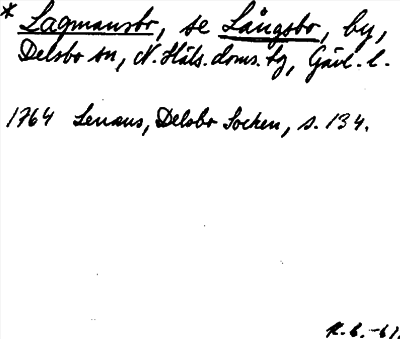 * Lagmansbo, se Långsbo, by,
Delsbo sn, N. Häls. doms. tg, Gävl. l.
1764 Lenæus, Delsbo Socken, s. 134.
R. L. -61.